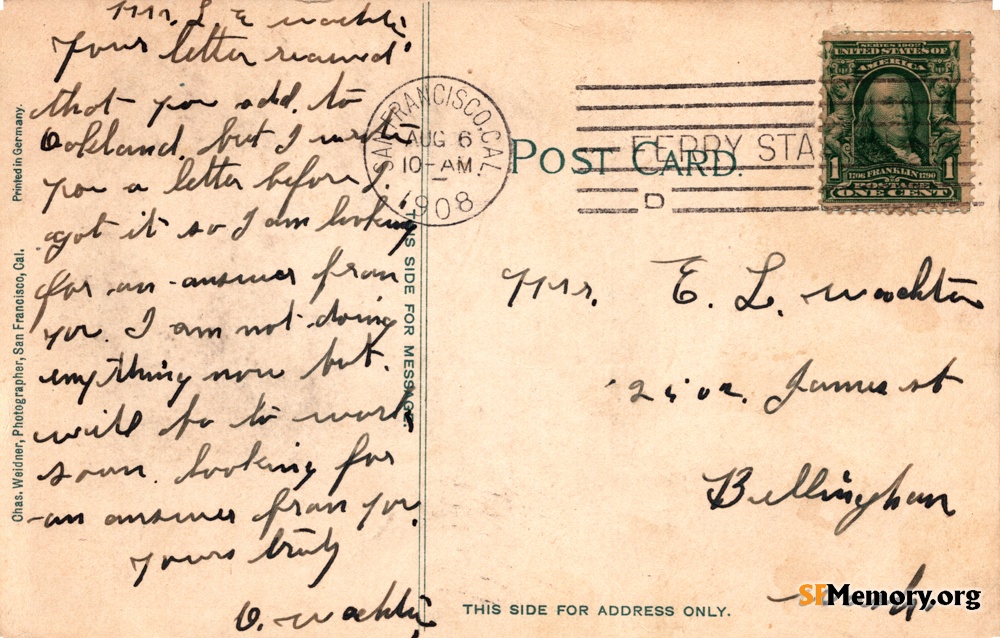 Mrs. L E wachter
Your letter received
that you add. to
Oakland, but I write
you a letter before I.
got it so I am looking
for an answer from
you. I am not doing
anything now but.
will go to work
soon. looking for
an answer from you.
yours truly
O. wachter
Printed in Germany.
Chas. Weidner, Photographer, San Francisco, Cal.
SAN FRANCISCO, CAL.
AUG 6
10-AM
1908
FERRY STA
D
POST CARD.
THIS SIDE FOR MESSAGE.
SERIES 1902
UNITED STATES OF
AMERICA
1 1706 FRANKLIN 1790 1
POSTAGE
ONE CENT
Mrs. E. L. wachter
James st
Bellingham
THIS SIDE FOR ADDRESS ONLY.
SFMemory.org